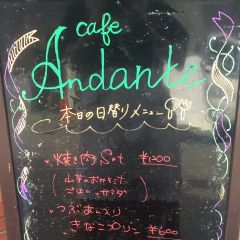 cafe
Andante
本日の日替りメニュー
・焼き肉Set ¥1200
(山芋のおかか汁
ごはん・サラダ)
・つぶあん入り
きなこプリン ¥600